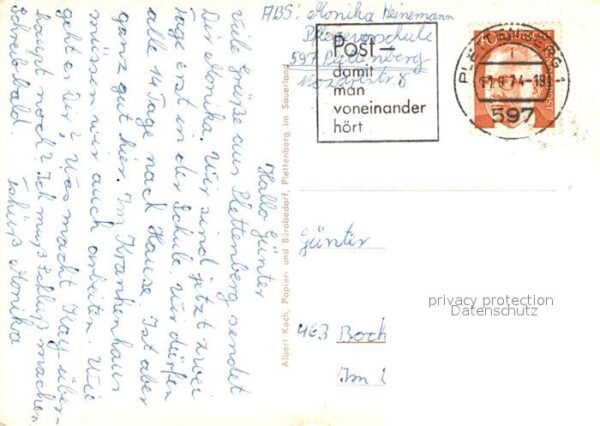 ABS: Monika Heinemann
Pflegevorschule
597 Plettenberg
Mozartstr 8
Post-
damit
man
voneinander
hört
70
PLETTENBERG 1
-9.74-19
597
Hallo Günter
Viele Grüße aus Plettenberg sendet
Dir Monika. Wir sind jetzt zwei
Tage erst in der Schule. Wir dürfen
alle 14 Tage nach Hause. Ist aber
ganz gut hier. Im Krankenhaus
müssen wir auch arbeiten. Wie
geht es Dir? Was macht Kay über-
haupt noch? Ich muß Schluß machen
Schreib bald.
Tschüß Monika
Albert Koch, Papier- und Bürobedarf, Plettenberg im Sauerland
Günter
463 Boch
Im
privacy protection
Datenschutz